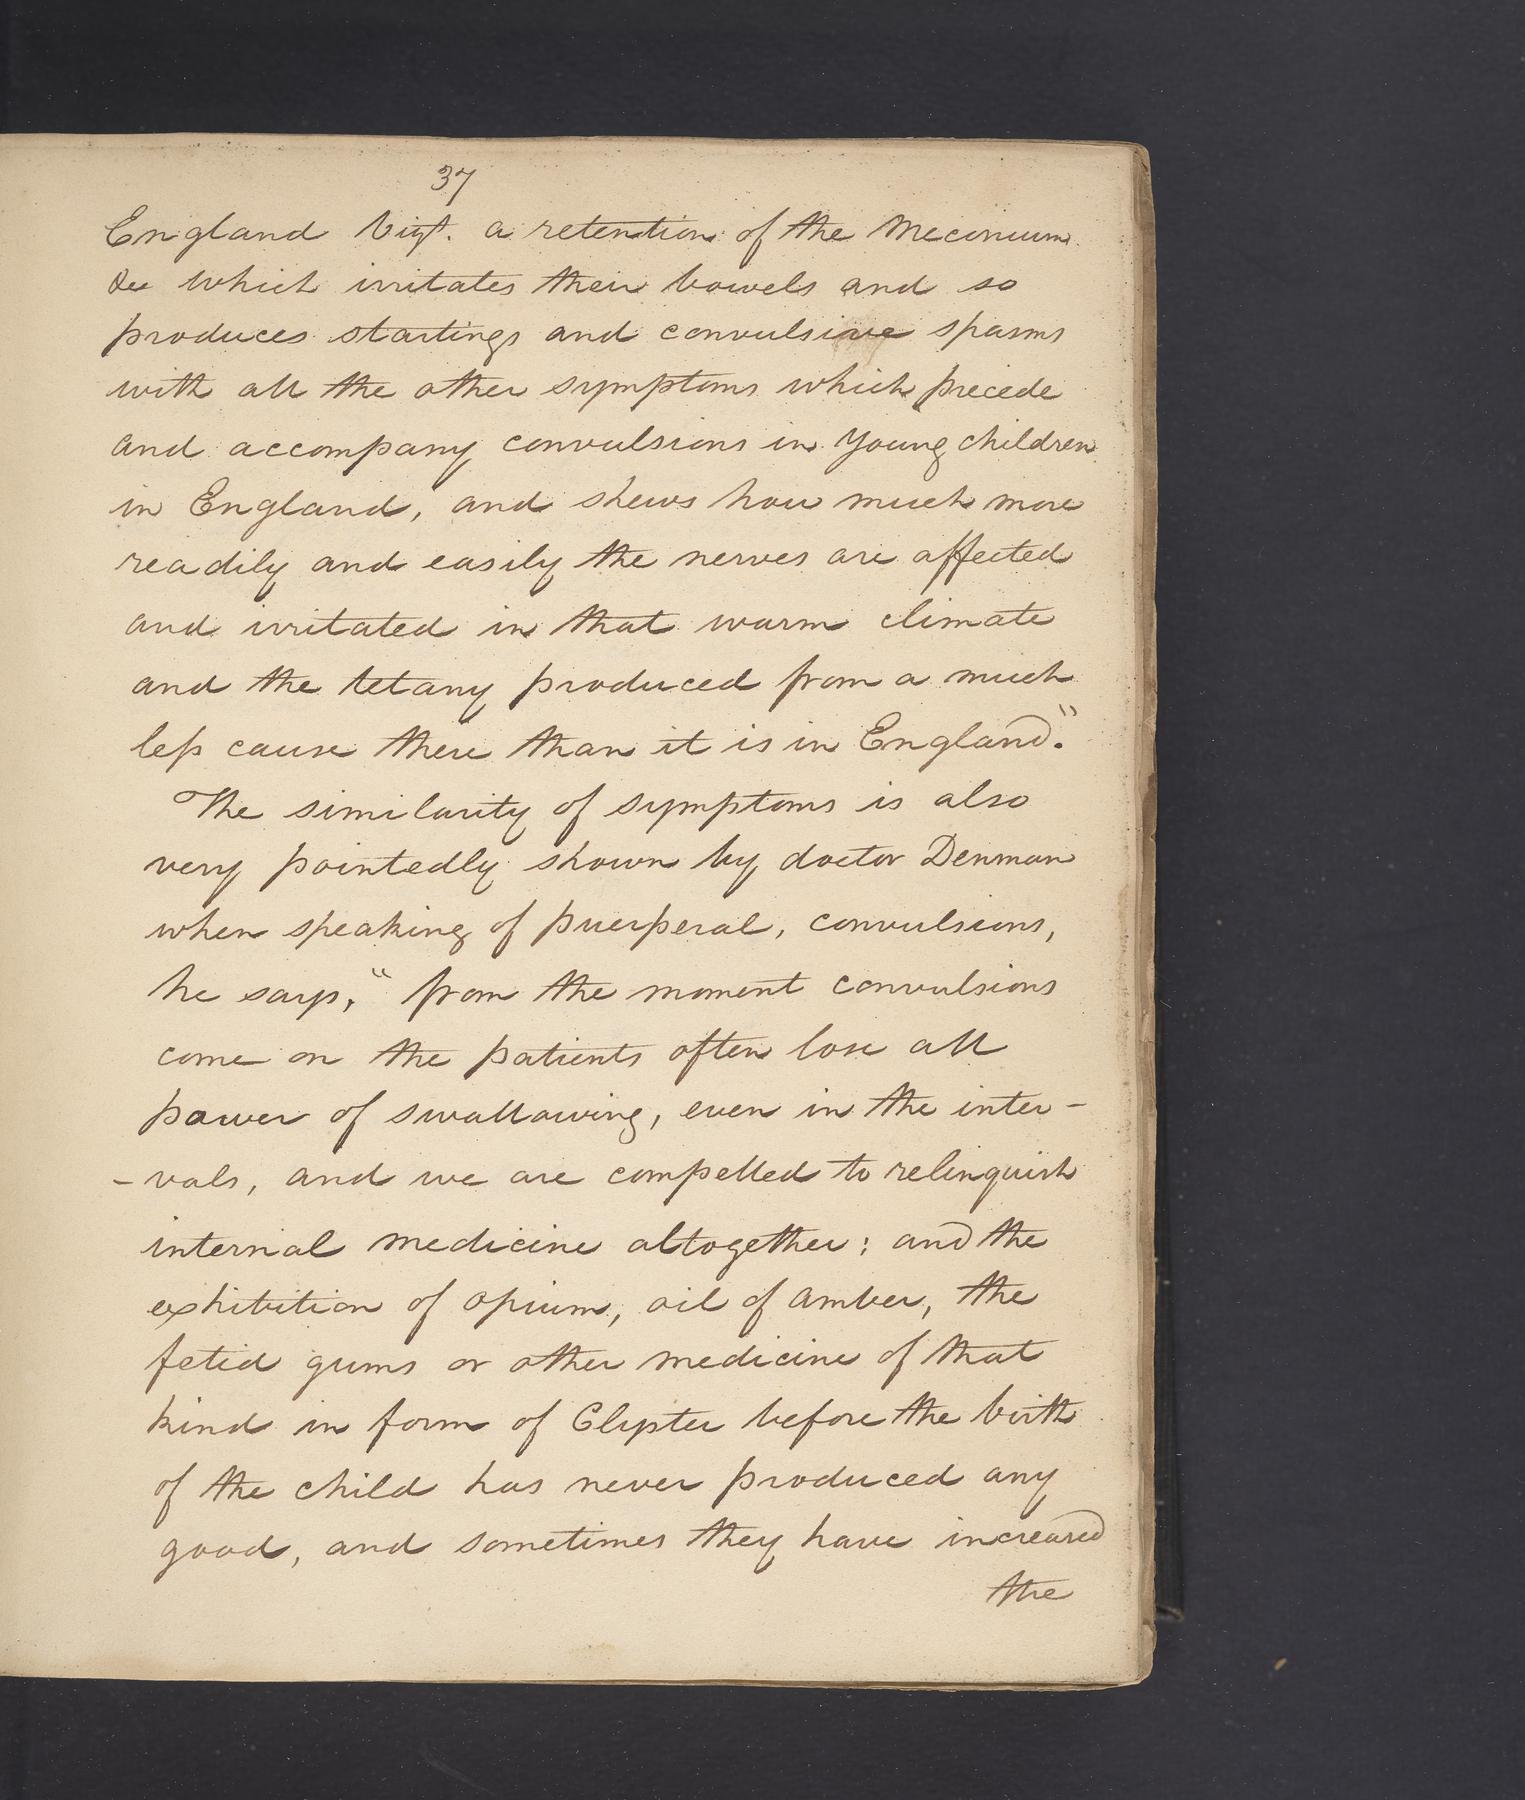 37
England Vizt. a retention of the Meconium
&c which irritates their bowels and so
produces startings and convulsive spasms
with all the other symptoms which precede
and accompany convulsions in young children
in England, and shews how much more
readily and easily the nerves are affected
and irritated in that warm climate
and the tetany produced from a much
less cause there than it is in England."
The similarity of symptoms is also
very pointedly shown by doctor Denman
when speaking of puerperal, convulsions,
he says, "from the moment convulsions
come on the patients often lose all
power of swallowing, even in the inter-
-vals, and we are compelled to relinquish
internal medicine altogether; and the
exhibition of opium, oil of amber, the
fetid gums or other medicine of that
kind in form of Clyster before the birth
of the child has never produced any
good, and sometimes they have increased
the